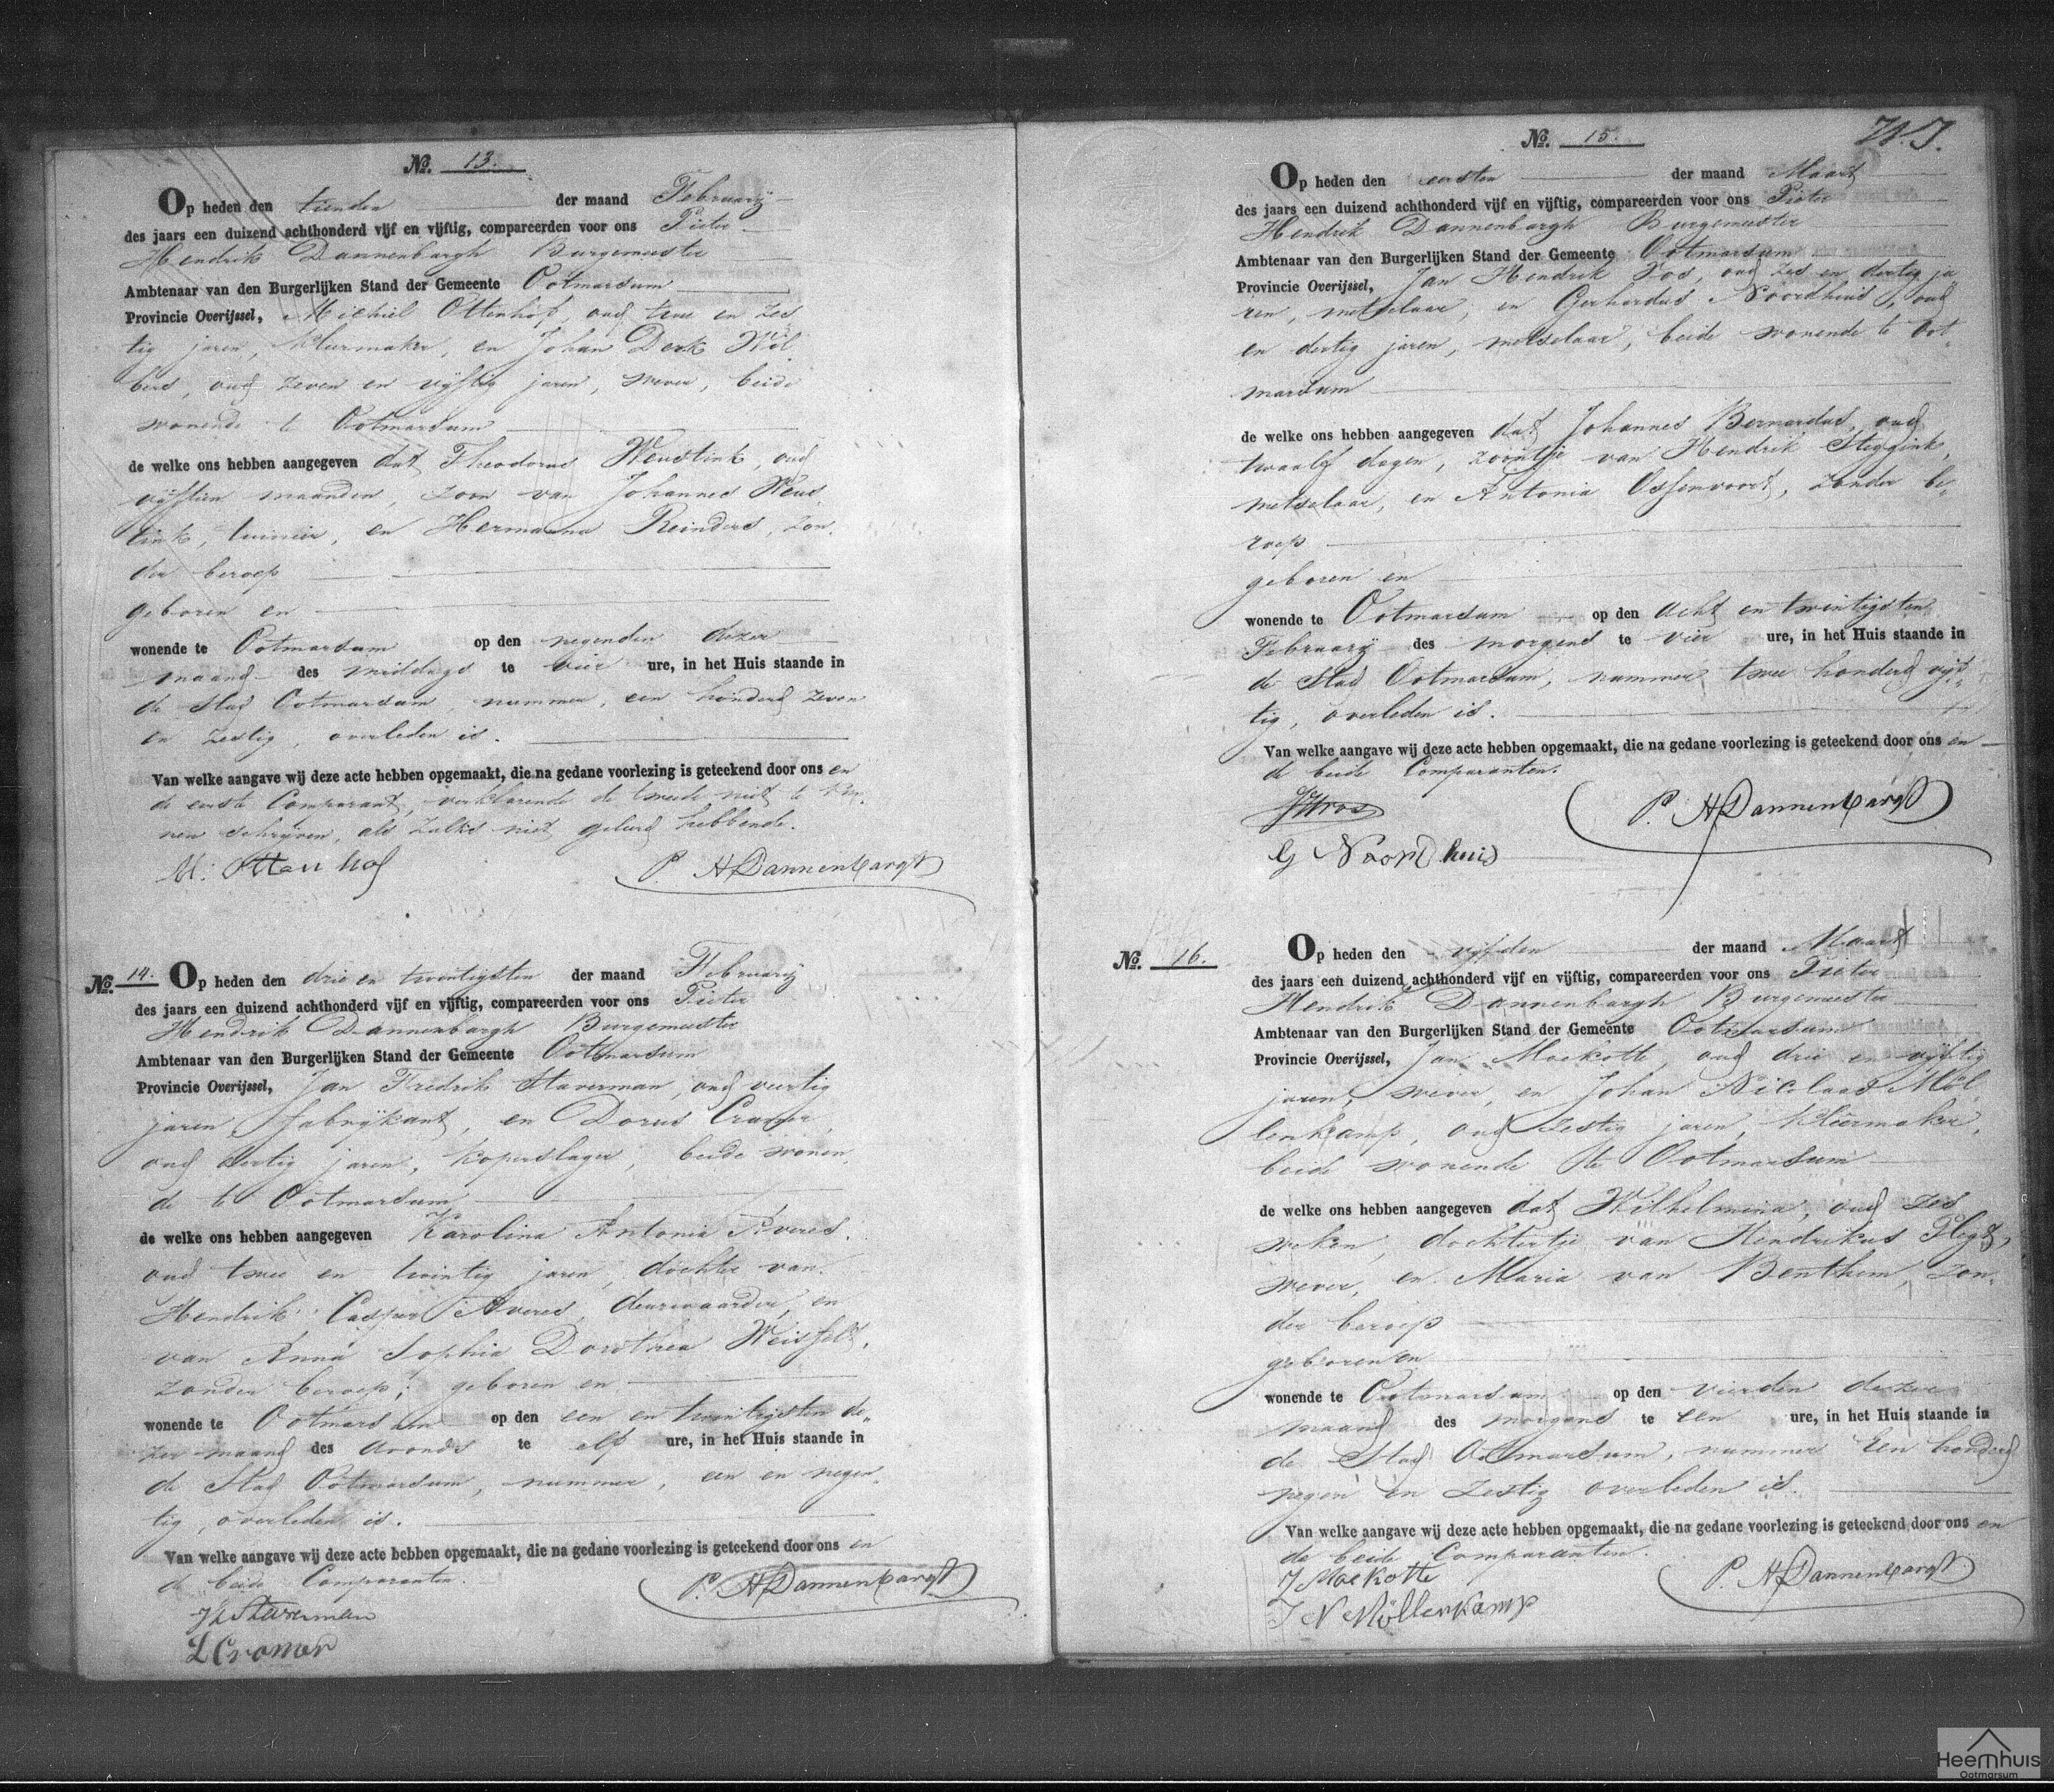 No. 13.
Op heden den tienden der maand February
des jaars een duizend achthonderd vijf en vijftig, compareerden voor ons Pieter
Hendrik Dannenbargh Burgemeester
Ambtenaar van den Burgerlijken Stand der Gemeente Ootmarsum
Provincie Overijssel, Michiel Ottenhof, oud twee en zes
tig jaren, kleermaker, en Johan Derk Wöl
bers, oud zeven en vyftig jaren, wever, beide
wonende te Ootmarsum
de welke ons hebben aangegeven dat Theodorus Weustink, oud
vyftien maanden, zoon van Johannes Weus
tink, tuinier, en Hermanna Reinders, zon
der beroep
geboren en
wonende te Ootmarsum op den negenden dezer
maand des middags te vier ure, in het Huis staande in
de Stad Ootmarsum, nummer, een honderd zeven
en zestig, overleden is.
Van welke aangave wij deze acte hebben opgemaakt, die na gedane voorlezing is geteekend door ons en
de eerste Comparant, verklarende de tweede niet te kun
nen schryven, als zulks niet geleerd hebbende.
M. Ottenhof P. H Dannenbargh
No. 14. Op heden den drie en twintigsten der maand February
des jaars een duizend achthonderd vijf en vijftig, compareerden voor ons Pieter
Hendrik Dannenbargh Burgemeester
Ambtenaar van den Burgerlijken Stand der Gemeente Ootmarsum
Provincie Overijssel, Jan Fredrik Staverman, oud veertig
jaren, fabrykant, en Dorus Cramer,
oud dertig jaren, koperslager, beide wonen
de te Ootmarsum
de welke ons hebben aangegeven Karolina Antonia Averes,
oud twee en twintig jaren, dochter van
Hendrik Casper Averes, deurwaarder, en
van Anna Sophia Dorothea
zonder beroep, geboren en
wonende te Ootmarsum op den een en twintigsten de„
zer maand des avonds te elf ure, in het Huis staande in
de Stad Ootmarsum, nummer, een en negen
tig, overleden is.
Van welke aangave wij deze acte hebben opgemaakt, die na gedane voorlezing is geteekend door ons en
de beide Comparanten. P. H Dannenbargh
Staverman
Cramer
No. 15.
Op heden den eersten der maand Maart
des jaars een duizend achthonderd vijf en vijftig, compareerden voor ons Pieter
Hendrik Dannenbargh Burgemeester
Ambtenaar van den Burgerlijken Stand der Gemeente Ootmarsum
Provincie Overijssel, Jan Hendrik Vos, oud zes en dertig ja
ren, metselaar, en Gerhardus Noordhuis, oud
en dertig jaren, metselaar, beide wonende te Oot„
marsum
de welke ons hebben aangegeven dat Johannes Bernardus, oud
twaalf dagen, zoontje van Hendrik Steggink,
metselaar, en Antonia Ossenvoort, zonder be„
roep
geboren en
wonende te Ootmarsum op den acht en twintigsten
February des morgens te vier ure, in het Huis staande in
de Stad Ootmarsum, nummer twee honderd vyf„
tig, overleden is.
Van welke aangave wij deze acte hebben opgemaakt, die na gedane voorlezing is geteekend door ons en
de beide Comparanten.
JHVos P. H Dannenbargh
G Noordhuis
No. 16. Op heden den vyfden der maand Maart
des jaars een duizend achthonderd vijf en vijftig, compareerden voor ons Pieter
Hendrik Dannenbargh Burgemeester
Ambtenaar van den Burgerlijken Stand der Gemeente Ootmarsum
Provincie Overijssel, Jan Moekotte, oud drie en vyftig
jaren, wever, en Johan Nicolaas Möl
lenkamp, oud zestig jaren, kleermaker,
beide wonende te Ootmarsum
de welke ons hebben aangegeven dat Wilhelmina, oud zes
weken, dochtertje van Hendrikus Plegt,
wever, en Maria van Benthem, zon„
der beroep
geboren en
wonende te Ootmarsum op den vierden dezer
maand des morgens te een ure, in het Huis staande in
de Stad Ootmarsum, nummer Een honderd
negen en zestig overleden is.
Van welke aangave wij deze acte hebben opgemaakt, die na gedane voorlezing is geteekend door ons en
de beide Comparanten.
J Moekotte P. H Dannenbargh
J N Möllenkamp
Heemhuis
Ootmarsum